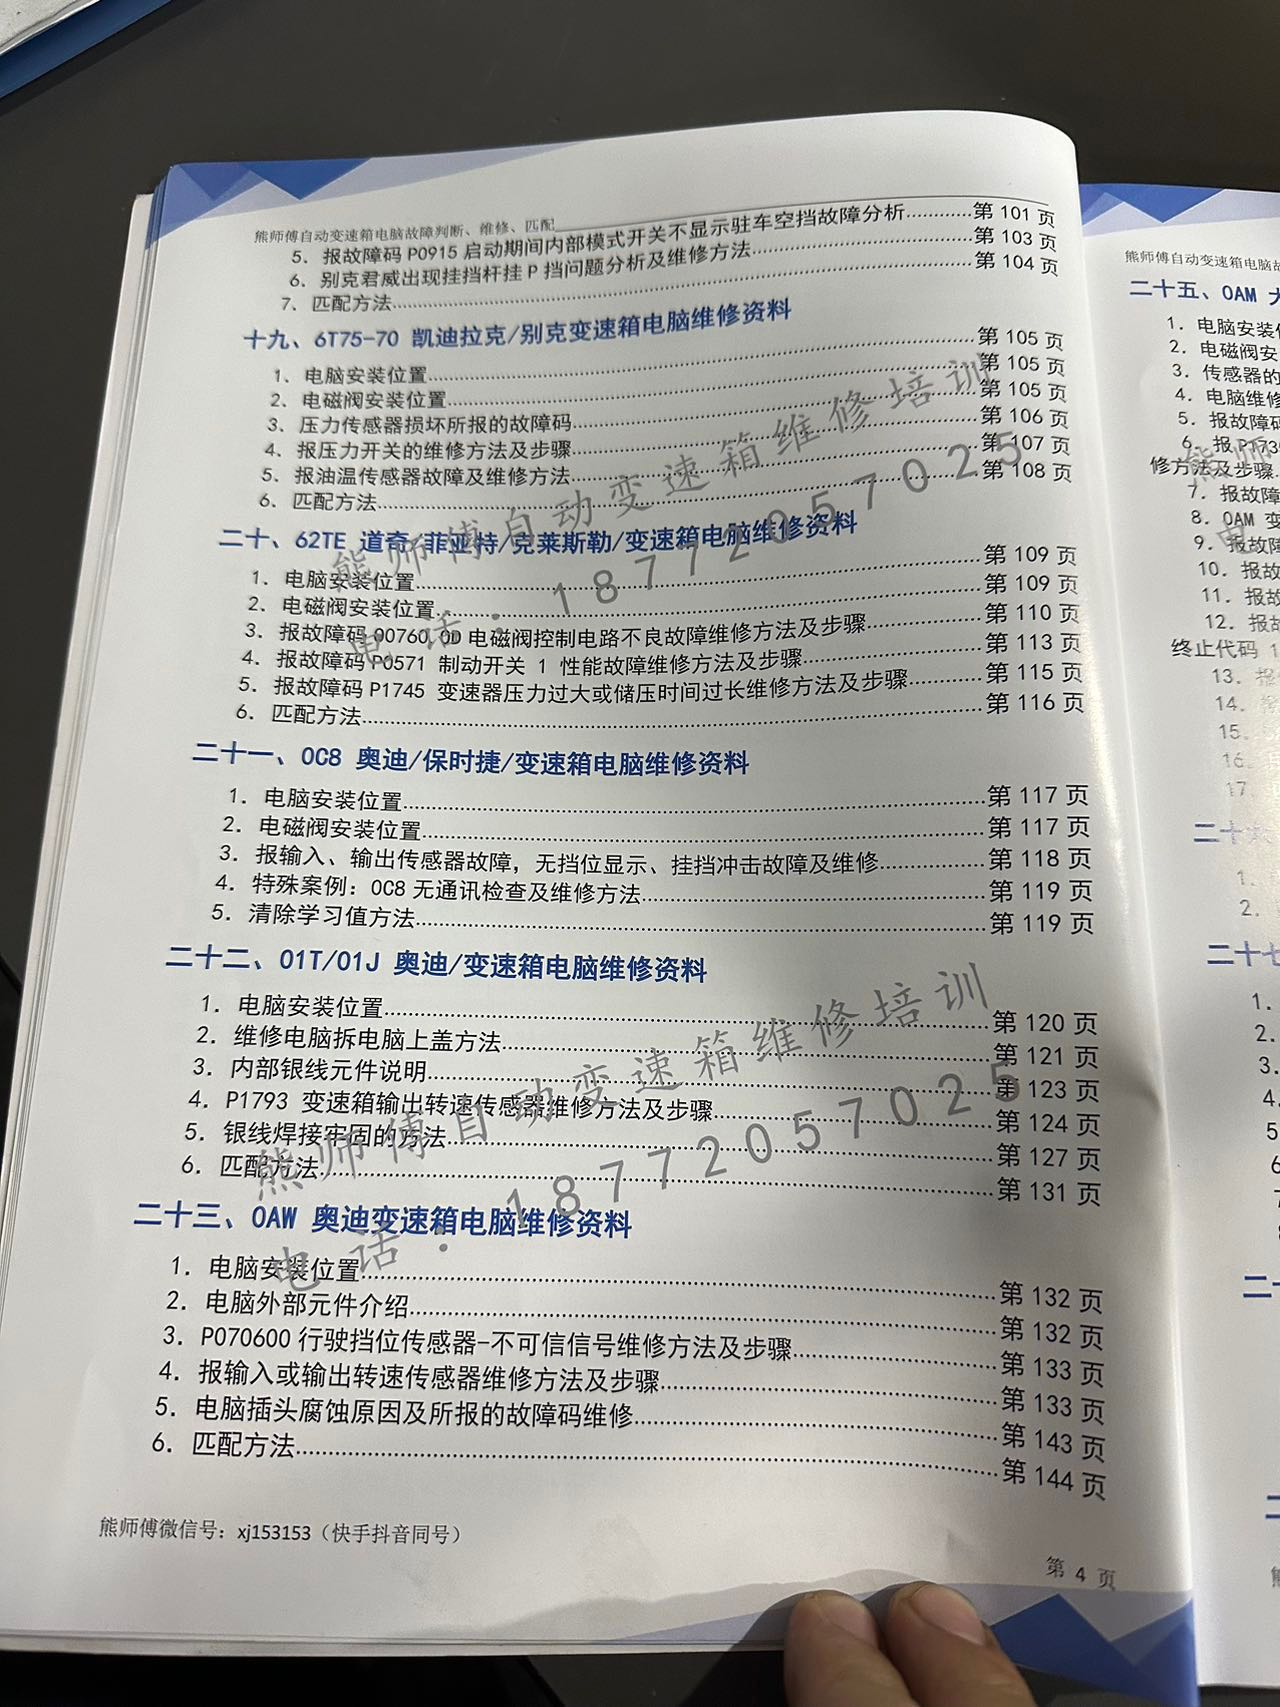 熊师傅自动变速箱电脑故障判断、维修、匹配
5. 报故障码 P0915 启动期间内部模式开关不显示驻车空挡故障分析............第 101 页
6. 别克君威出现挂挡杆挂 P 挡问题分析及维修方法............第 103 页
7. 匹配方法............第 104 页
十九、6T75-70 凯迪拉克/别克变速箱电脑维修资料
1、电脑安装位置............第 105 页
2、电磁阀安装位置............第 105 页
3、压力传感器损坏所报的故障码............第 105 页
4、报压力开关的维修方法及步骤............第 106 页
5、报油温传感器故障及维修方法............第 107 页
6、匹配方法............第 108 页
二十、62TE 道奇/菲亚特/克莱斯勒/变速箱电脑维修资料
1. 电脑安装位置............第 109 页
2. 电磁阀安装位置............第 109 页
3. 报故障码 00760 OD 电磁阀控制电路不良故障维修方法及步骤............第 110 页
4. 报故障码 P0571 制动开关 1 性能故障维修方法及步骤............第 113 页
5. 报故障码 P1745 变速器压力过大或储压时间过长维修方法及步骤............第 115 页
6. 匹配方法............第 116 页
二十一、0C8 奥迪/保时捷/变速箱电脑维修资料
1. 电脑安装位置............第 117 页
2. 电磁阀安装位置............第 117 页
3. 报输入、输出传感器故障，无挡位显示、挂挡冲击故障及维修............第 118 页
4. 特殊案例：0C8 无通讯检查及维修方法............第 119 页
5. 清除学习值方法............第 119 页
二十二、01T/01J 奥迪/变速箱电脑维修资料
1. 电脑安装位置............第 120 页
2. 维修电脑拆电脑上盖方法............第 121 页
3. 内部银线元件说明............第 123 页
4. P1793 变速箱输出转速传感器维修方法及步骤............第 124 页
5. 银线焊接牢固的方法............第 127 页
6. 匹配方法............第 131 页
二十三、0AW 奥迪变速箱电脑维修资料
1. 电脑安装位置............第 132 页
2. 电脑外部元件介绍............第 132 页
3. P070600 行驶挡位传感器-不可信信号维修方法及步骤............第 133 页
4. 报输入或输出转速传感器维修方法及步骤............第 133 页
5. 电脑插头腐蚀原因及所报的故障码维修............第 143 页
6. 匹配方法............第 144 页
熊师傅自动变速箱维修培训
电话：18772057025
熊师傅自动变速箱维修培训
电话：18772057025
熊师傅微信号：xj153153（快手抖音同号）
第 4 页
熊师傅自动变速箱电脑
二十五、0AM
1. 电脑安装
2. 电磁阀安
3. 传感器的
4. 电脑维修
5. 报故障码
6. 报 P173
修方法及步骤
7. 报故障
8. 0AM 变
9. 报故障
10. 报故
11. 报故
12. 报故
终止代码 1
13. 报
14.
15.
16.
17.
二十六
1.
2.
二十七
1.
2.
3.
4.
5
6